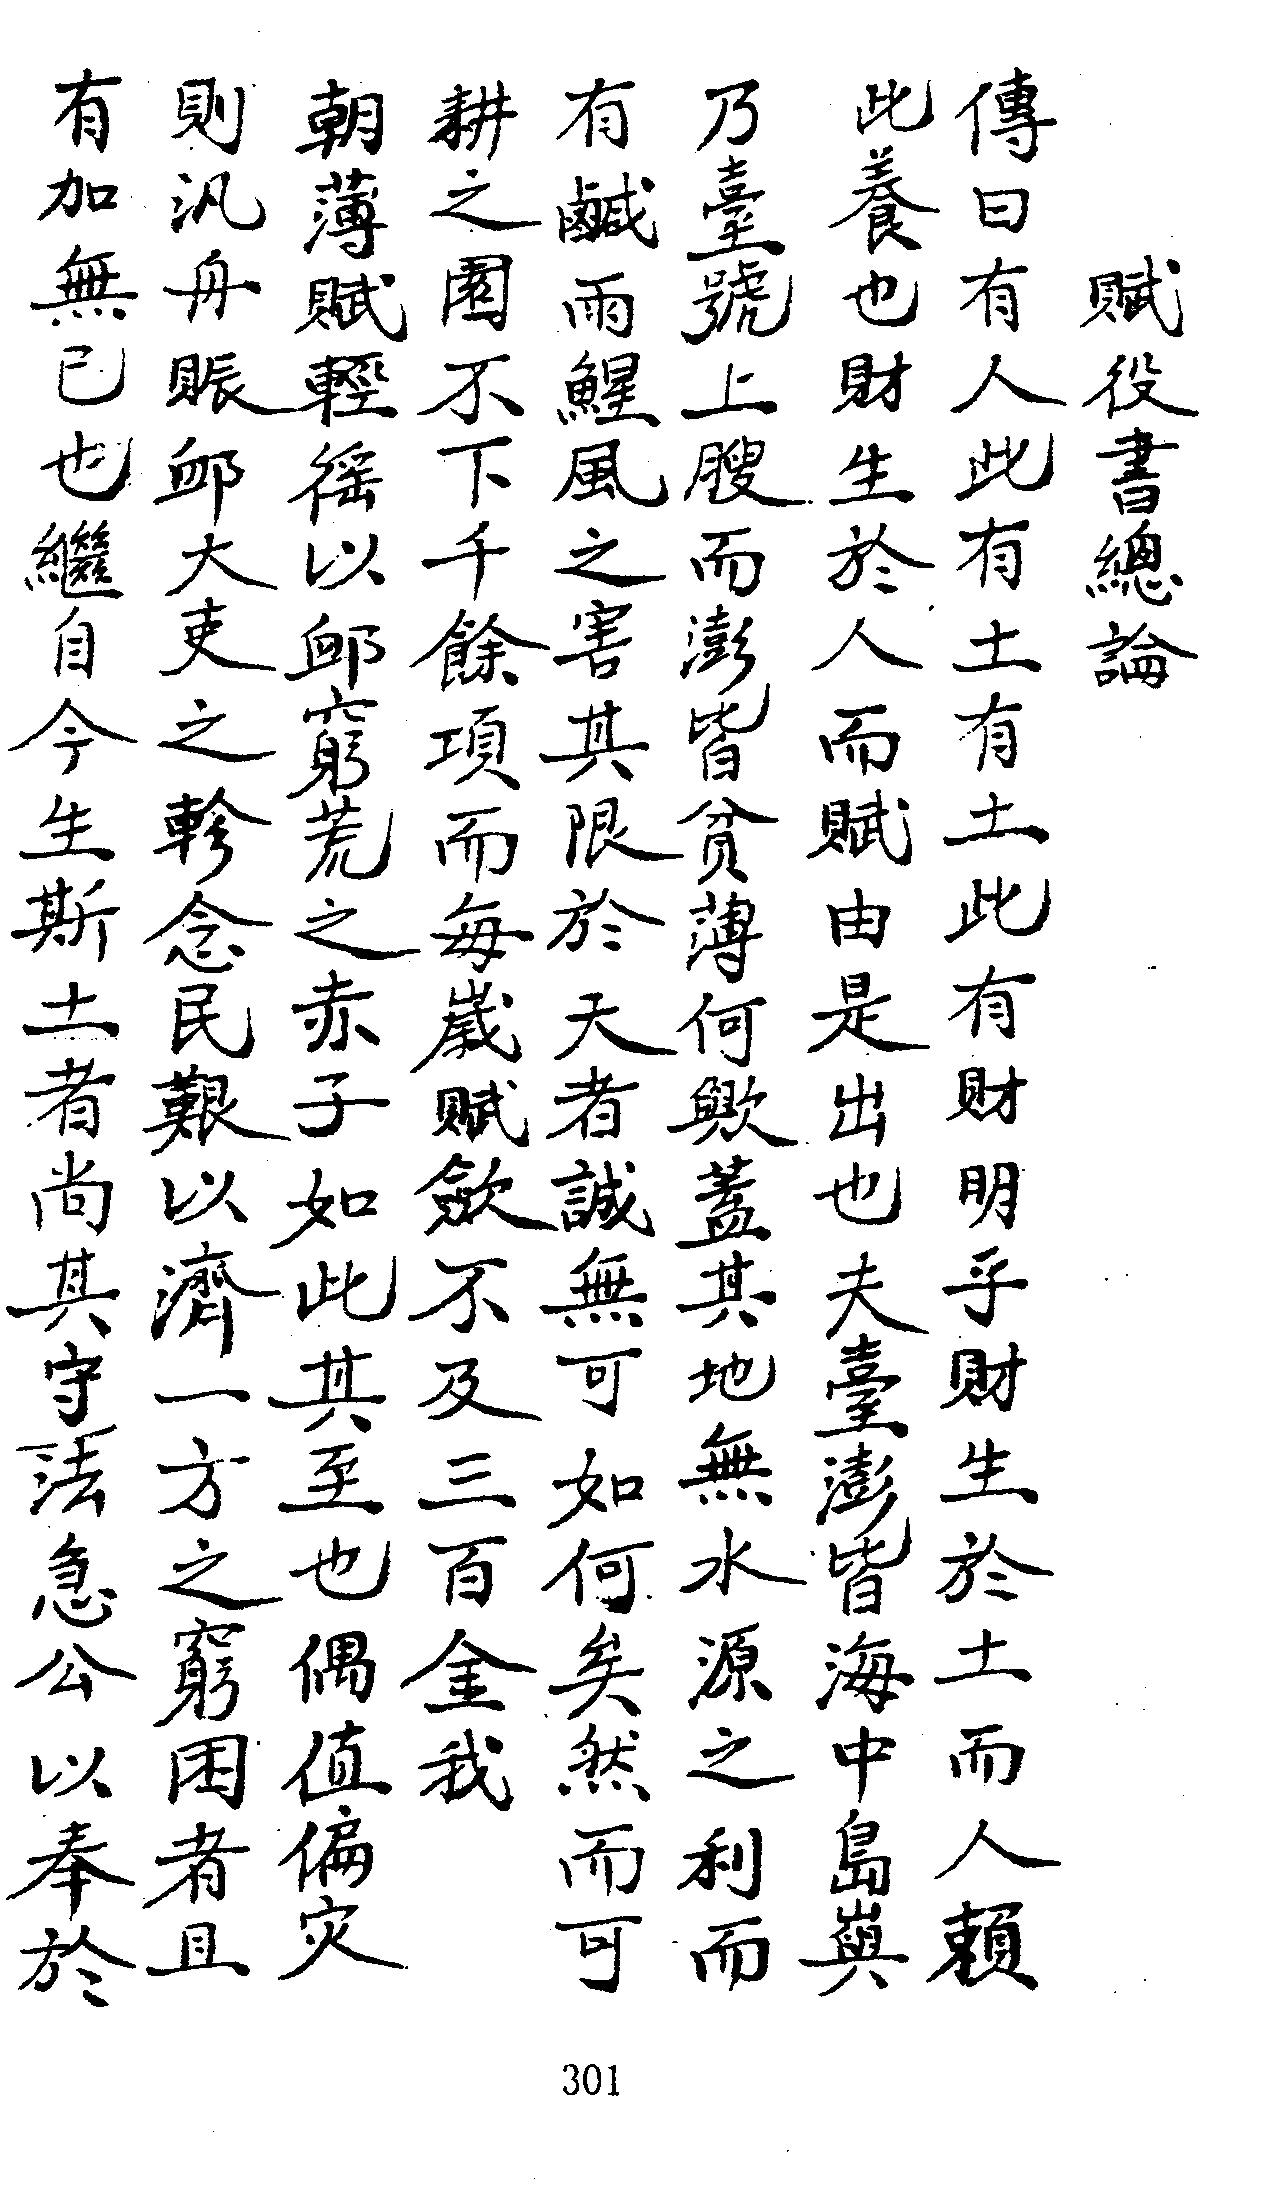 賦役書總論
傳曰有人此有土有土此有財明乎財生於土而人賴
此養也財生於人而賦由是出也夫臺澎皆海中島嶼
乃臺號上腴而澎皆貧薄何歟蓋其地無水源之利而
有鹹雨鯹風之害其限於天者誠無可如何矣然而可
耕之園不下千餘項而每歲賦斂不及三百金我
朝薄賦輕徭以卹窮荒之赤子如此其至也偶值偏灾
則汎舟賑卹大吏之軫念民艱以濟一方之窮困者且
有加無已也繼自今生斯土者尚其守法急公以奉於
301